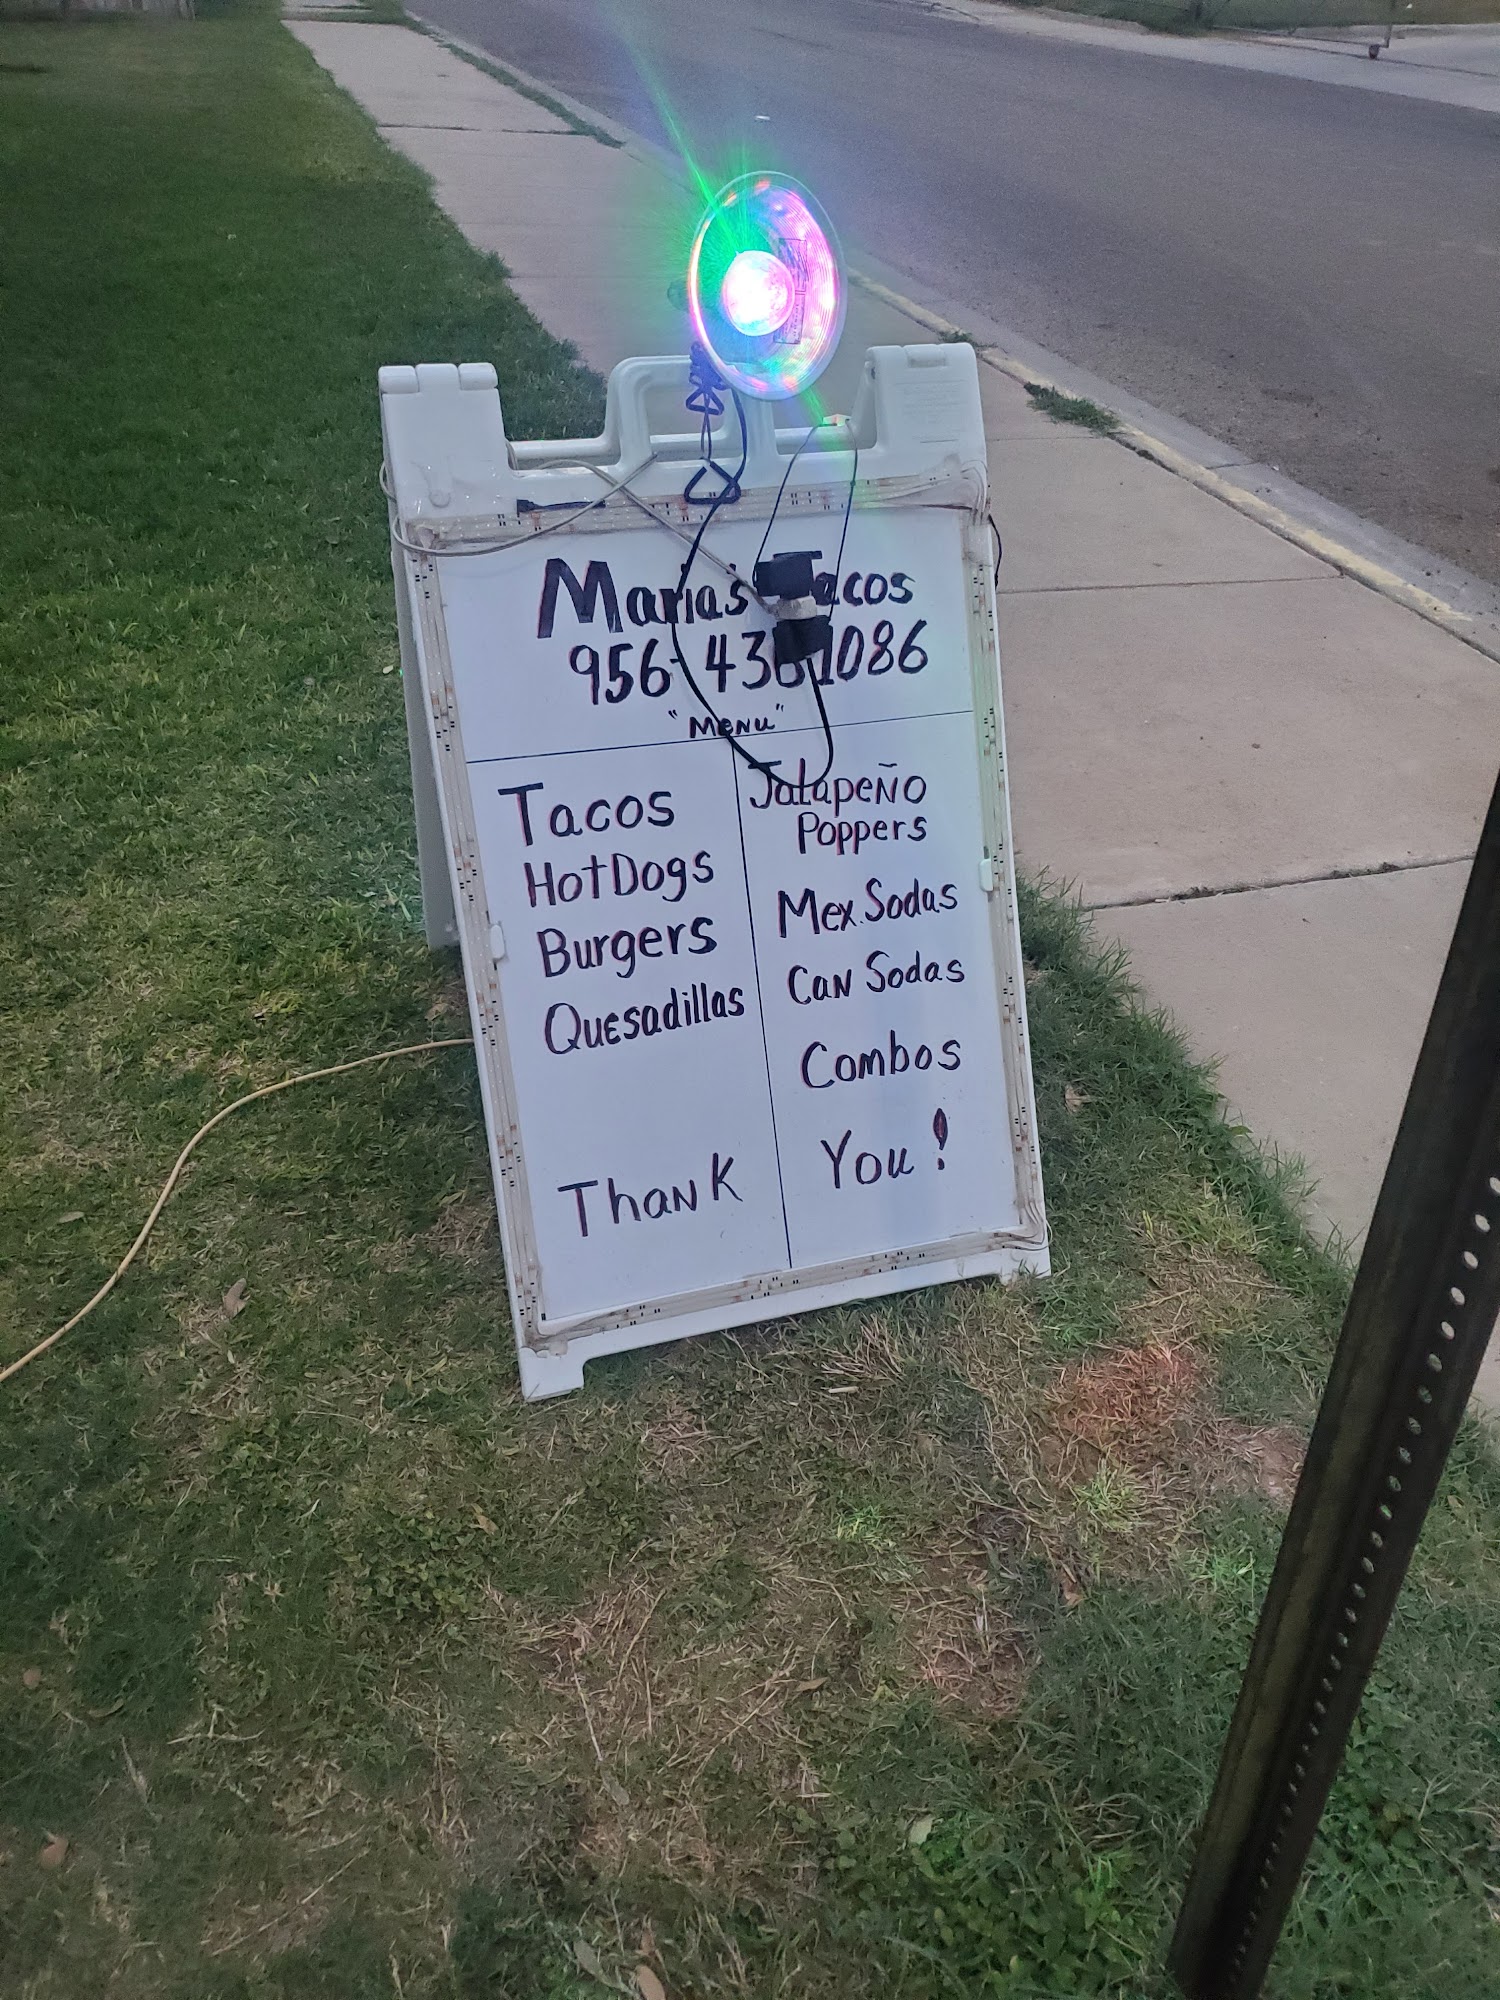 Maria's Tacos
956-43 1086
"Menu"
Tacos
HotDogs
Burgers
Quesadillas
Jalapeño
Poppers
Mex. Sodas
Can Sodas
Combos
Thank You!